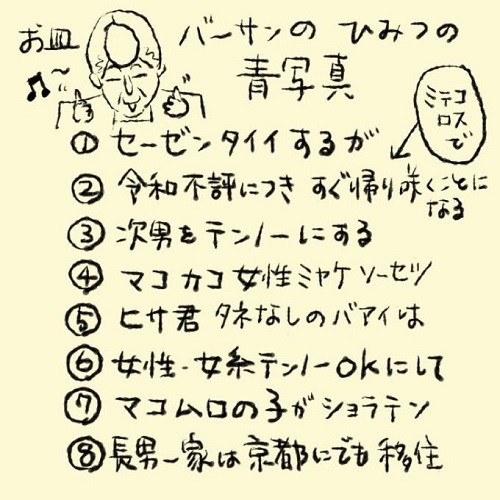 お皿 バーサンの ひみつの
青写真
コレデ
ミテロス
① セーゼンタイイするが
② 令和不評につき すぐ帰り咲くことに
なる
③ 次男をテンノーにする
④ マコカコ女性ミヤケソーセツ
⑤ ヒサ君 タネなしのバアイは
⑥ 女性・女系テンノーOKにして
⑦ マコムロの子がショラテン
⑧ 長男一家は京都にでも移住